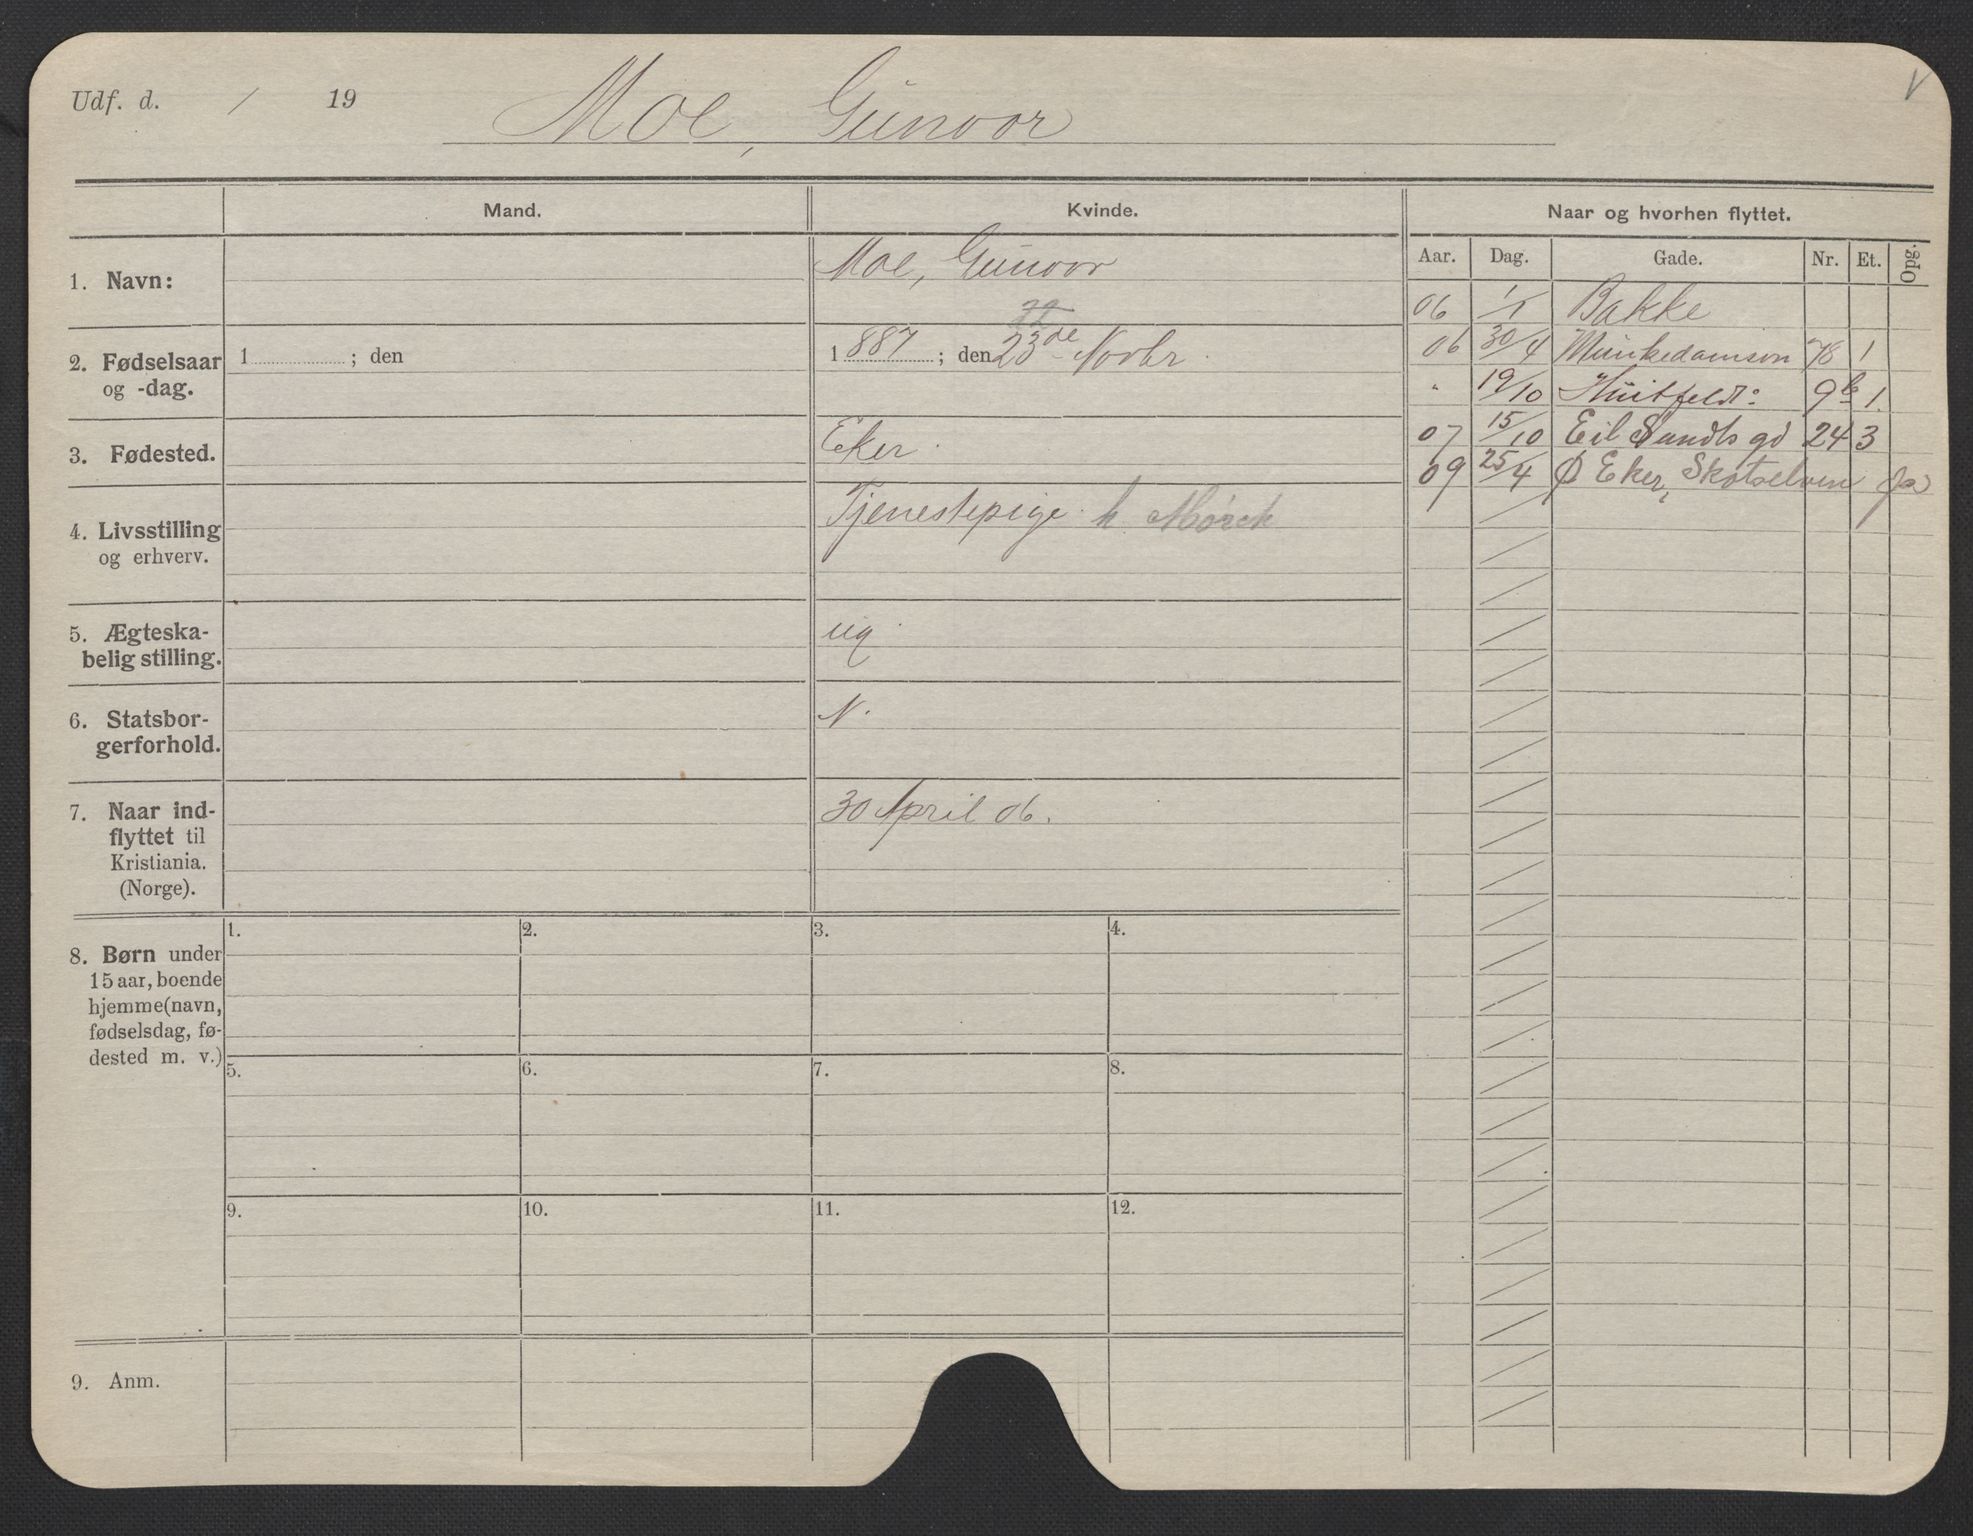 Udf. d. / 19
Moe, Gunvor
V
Mand.
Kvinde.
Naar og hvorhen flyttet.
Aar. Dag. Gade. Nr. Et. Opg.
1. Navn:
Moe, Gunvor
2. Fødselsaar
og -dag.
1 ; den
1887 ; den 23de Novbr.
3. Fødested.
Eker.
4. Livsstilling
og erhverv.
Tjenestepige. h. Mörch
5. Ægteska-
belig stilling.
ug.
6. Statsbor-
gerforhold.
N.
7. Naar ind-
flyttet til
Kristiania.
(Norge).
30 April 06.
06 1/1 Bakke
06 30/4 Munkedamsvn 78 1
" 19/10 Huitfeldt: 9b 1.
07 15/10 Eil Sundts gd 24 3
09 25/4 Ø Eker, Skotselven
8. Børn under
15 aar, boende
hjemme (navn,
fødselsdag, fø-
dested m. v.)
1. 2. 3. 4.
5. 6. 7. 8.
9. 10. 11. 12.
9. Anm.